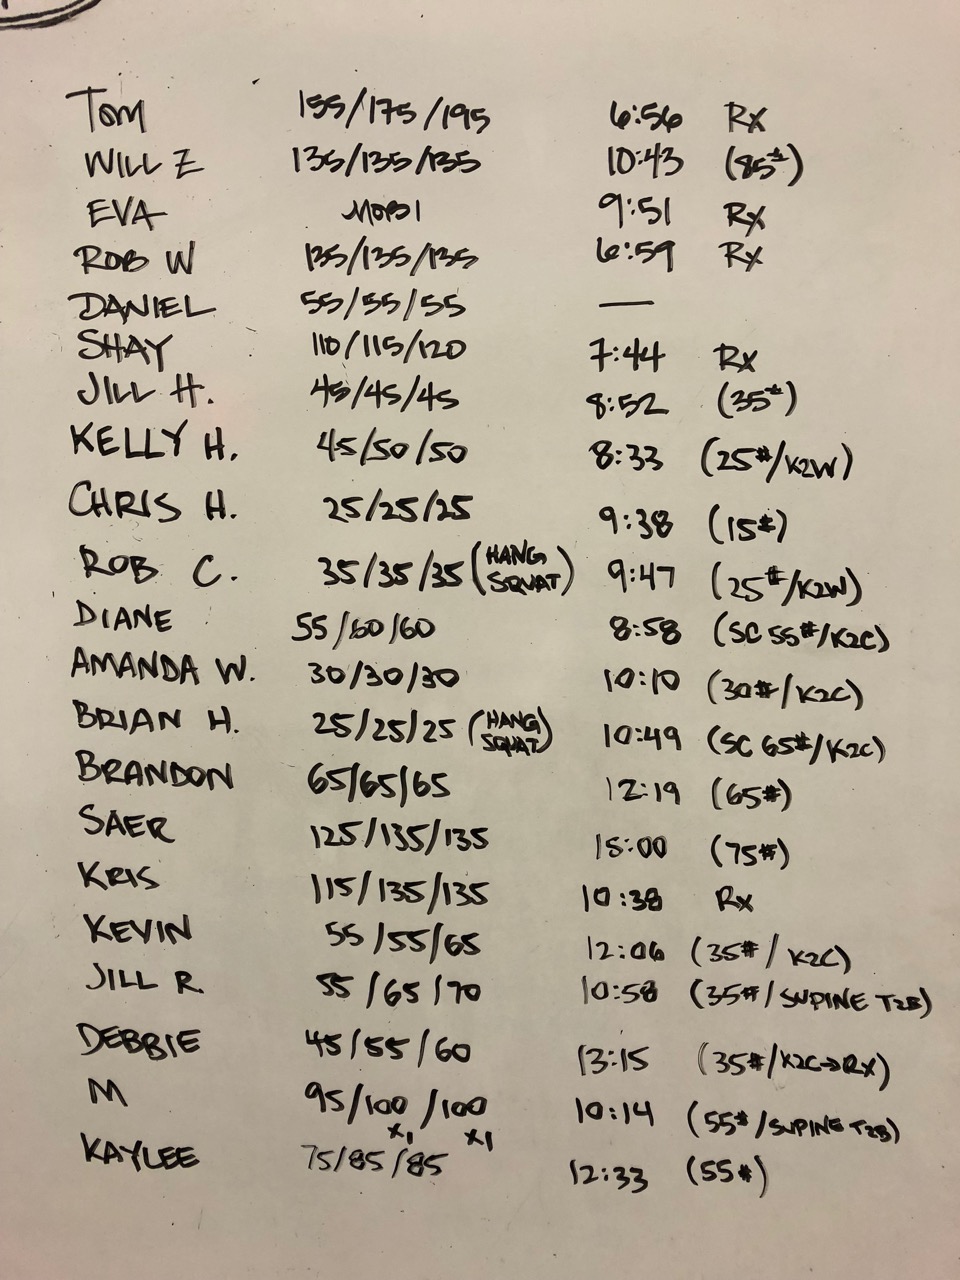 TOM 155/175/195 6:56 Rx
WILL Z 135/135/135 10:43 (85#)
EVA MOB1 9:51 Rx
ROB W 135/135/135 6:59 Rx
DANIEL 55/55/55 —
SHAY 110/115/120 7:44 Rx
JILL H. 45/45/45 8:52 (35#)
KELLY H. 45/50/50 8:33 (25#/K2W)
CHRIS H. 25/25/25 9:38 (15#)
ROB C. 35/35/35 (HANG SQUAT) 9:47 (25#/K2W)
DIANE 55/60/60 8:58 (SC 55#/K2C)
AMANDA W. 30/30/30 10:10 (30#/K2C)
BRIAN H. 25/25/25 (HANG SQUAT) 10:49 (SC 65#/K2C)
BRANDON 65/65/65 12:19 (65#)
SAER 125/135/135 15:00 (75#)
KRIS 115/135/135 10:38 Rx
KEVIN 55/55/65 12:06 (35#/K2C)
JILL R. 55/65/70 10:58 (35#/SUPINE T2B)
DEBBIE 45/55/60 13:15 (35#/K2C→RX)
M 95/100/100 10:14 (55#/SUPINE T2B)
x1 x1
KAYLEE 75/85/85 12:33 (55#)